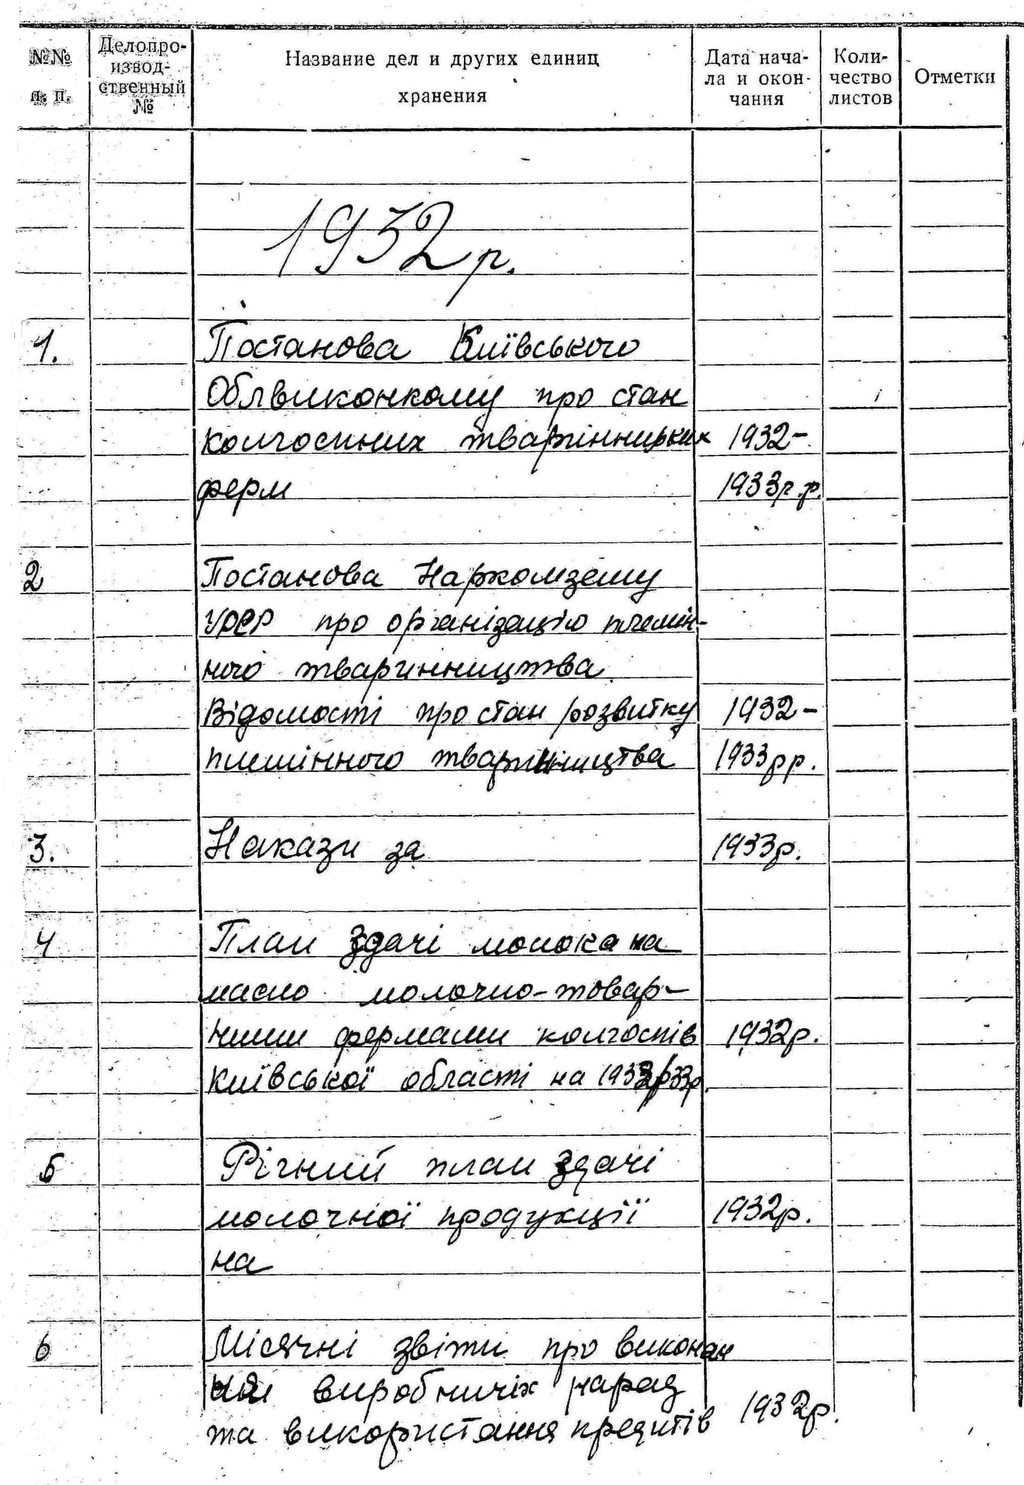 №№ п. п.
Делопро-
извод-
ственный
№
Название дел и других единиц
хранения
Дата нача-
ла и окон-
чания
Коли-
чество
листов
Отметки
1932 р.
1. Постанова Київського
Облвиконкому про стан
колгоспних тваринницьких 1932-
ферм 1933р.р.
2 Постанова Наркомзему
УРСР про організацію племін-
ного тваринництва.
Відомості про стан розвитку 1932-
племінного тваринництва 1933рр.
3. Накази за 1933р.
4 План здачі молока на
масло молочно-товар-
ними фермами колгоспів 1932р.
Київської області на 1932/33р.
5 Річний план здачі
молочної продукції 1932р.
на
6 Місячні звіти про виконан
ня виробничих нарад
та використання кредитів 1932р.